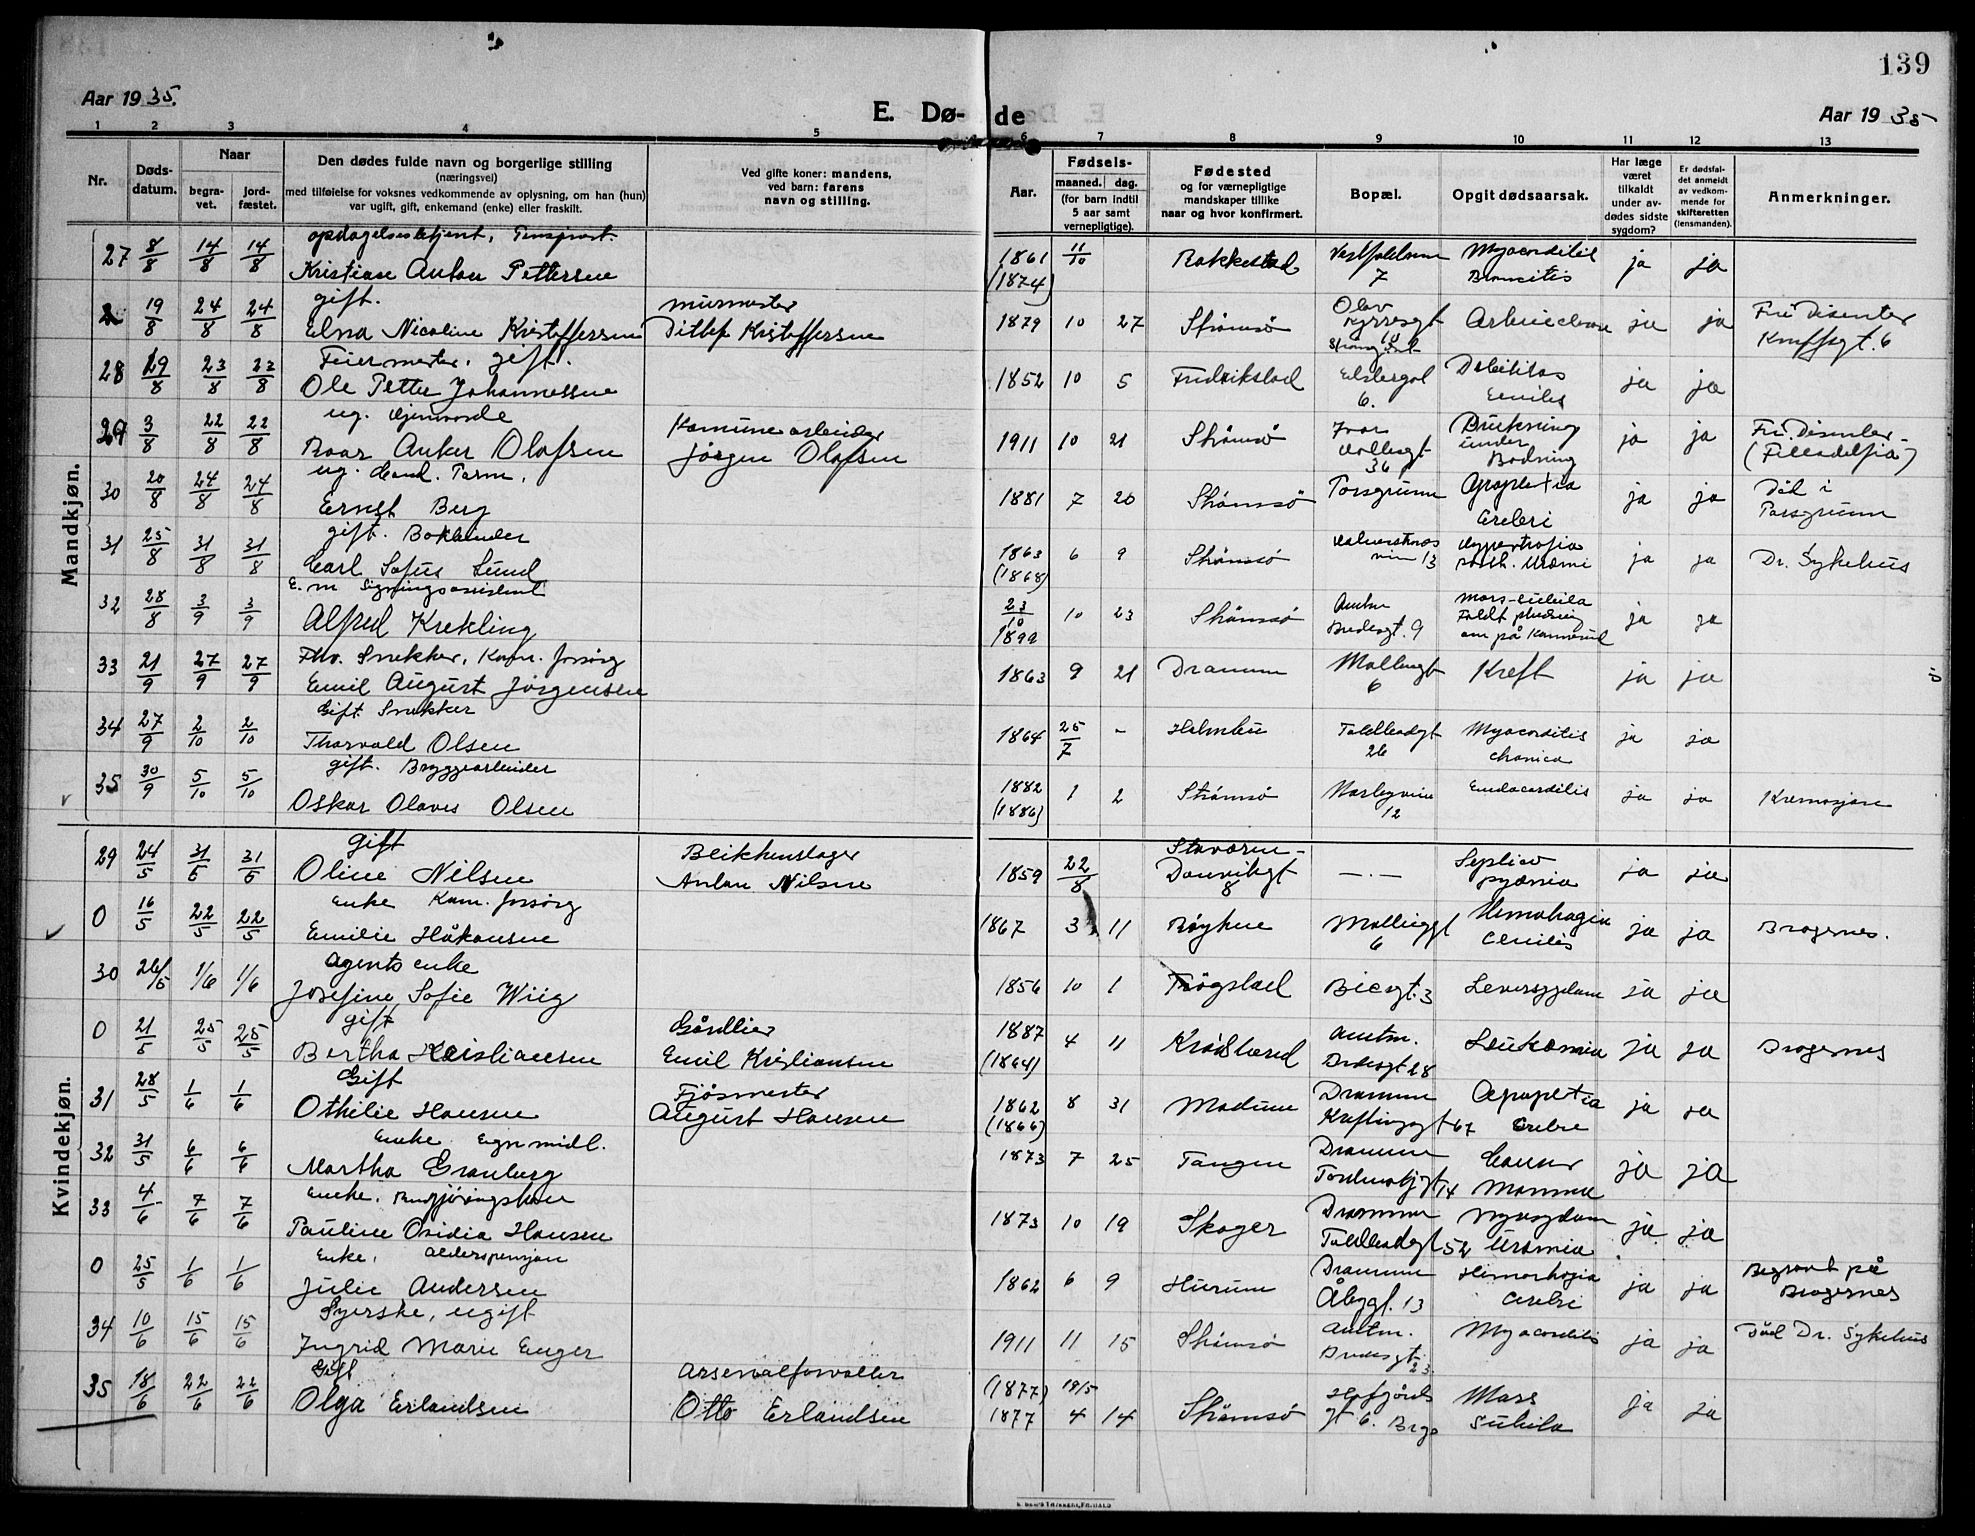 139
Aar 1935.
E. Dø- de
Aar 1935
1 2 3 4 5 6 7 8 9 10 11 12 13
Nr.
Døds-
datum.
Naar
begra-
vet.
jord-
fæstet.
Den dødes fulde navn og borgerlige stilling
(næringsvei)
med tilføielse for voksnes vedkommende av oplysning, om han (hun)
var ugift, gift, enkemand (enke) eller fraskilt.
Ved gifte koner: mandens,
ved barn: farens
navn og stilling.
Aar.
Fødsels-
maaned. dag.
(for barn indtil
5 aar samt
vernepligtige).
Fødested
og for værnepligtige
mandskaper tillike
naar og hvor konfirmert.
Bopæl.
Opgit dødsaarsak.
Har læge
været
tilkaldt
under av-
dødes sidste
sygdom?
Er dødsfal-
det anmeldt
av vedkom-
mende for
skifteretten
(lensmanden).
Anmerkninger.
Mandkjøn.
27 8/8 14/8 14/8 Kristian Anton Pettersen 1861 (1874) 11/10 Rakkestad 7 Myocarditis ja ja
19/8 24/8 24/8 gift. Elna Nicoline Kristoffersen murmester Ditlef Kristoffersen 1879 10 27 Strømsø Olav ja ja Fri Disenter
28 29/8 23/8 23/8 Feiermester, gift. Ole Petter Johannessen 1852 10 5 Fredrikstad 6. ja ja
29 3/8 22/8 22/8 ug. Roar Anker Olafsen Kommunearbeider Jørgen Olafsen 1911 10 21 Strømsø Ivar 36 Drukning under Badning ja ja Fri. Disenter (Filladelfia)
30 20/8 24/8 24/8 ug. Cand. Farm. Ernst Berg 1881 7 20 Strømsø Porsgrunn Apoplexia Cerebri ja ja Død i Porsgrunn
31 25/8 31/8 31/8 gift. Bokbinder Carl Sofus Lund 1863 (1868) 6 9 Strømsø 13 ja ja Dr. Sykehus
32 28/8 3/9 3/9 E. m Alfred Krekling 23/10 1899 10 23 Strømsø Bredesgt. 9 Mors subita ja ja
33 21/9 27/9 27/9 Fhv. Snekker, Kom. forsørg Emil August Jørgensen 1863 9 21 Drammen 6 Kreft ja ja
34 27/9 2/10 2/10 Gift Snekker Thorvald Olsen 1864 25/7 - 26 Myocarditis chronica ja ja
35 30/9 5/10 5/10 gift. Bryggearbeider Oskar Olaves Olsen 1882 (1886) 1 2 Strømsø 12 Endocarditis ja ja Kremasjon
Kvindekjøn.
29 24/5 31/5 31/5 gift Oline Nilsen Blikkenslager Anton Nilsen 1859 22/8 Staværen - Danvikgt 8 —.— pyæmia ja ja
0 16/5 22/5 22/5 Enke Kom. forsørg Emilie Håkonsen 1867 3 11 Røyken 6 ja ja Bragernes.
30 26/5 1/6 1/6 Agents enke Josefine Sofie Wiig 1856 10 1 Trøgstad Biesgt. 3 Leversygdom ja ja
0 21/5 25/5 25/5 gift Bertha Kristiansen Emil Kristiansen 1887 (1864) 4 11 Krødsherad Amtm. Bredesgt 28 Leukæmia ja ja Bragernes
31 28/5 1/6 1/6 Gift Othilie Hansen Fjøsmester August Hansen 1862 (1866) 8 31 Modum Drammen 67 ja ja
32 31/5 6/6 6/6 Enke Egne midl. Martha Granberg 1873 7 25 Tangen Drammen 14 Cancer Mamma ja ja
33 4/6 7/6 7/6 Enke, Pauline Ovidia Hansen 1873 10 19 Skoger Drammen 52 Nyresygdom Uræmia ja ja
0 25/5 1/6 1/6 Enke, alderspensjon Julie Andersen 1862 6 9 Hurum Drammen Åbygt. 13 cerebri ja ja Begravet på Bragernes
34 10/6 15/6 15/6 Syerske, ugift Ingrid Marie Enger 1911 11 15 Strømsø Amtm. Bredesgt. 23 Myocarditis ja ja Død Dr. Sykehus
35 18/6 22/6 22/6 Gift Olga Erlandsen Arsenalforvalter Otto Erlandsen (1877) 1877 19/5 4 14 Strømsø gt 6. Brgs Mors subita ja ja